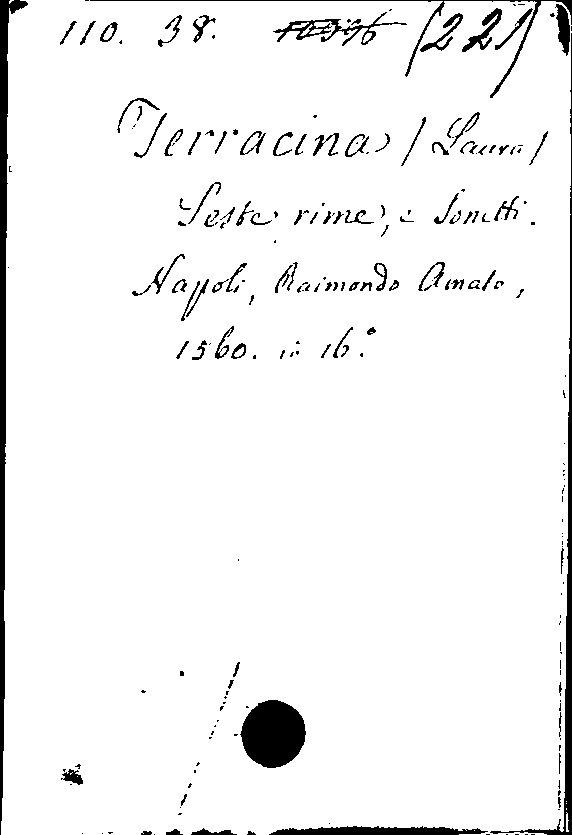 110. 38. (221)
Terracina (Laura)
Seste rime, e Sonetti.
Napoli, Raimondo Amato,
1560. in 16.°